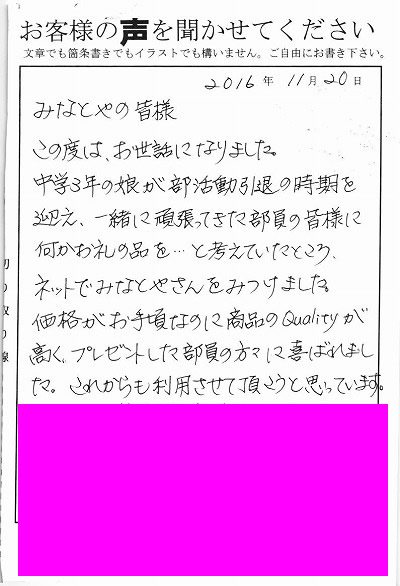 お客様の声を聞かせてください
文章でも箇条書きでもイラストでも構いません。ご自由にお書き下さい。
2016年 11月 20日
みなとやの皆様
この度は、お世話になりました。
中学3年の娘が部活動引退の時期を
迎え、一緒に頑張ってきた部員の皆様に
何かお礼の品を…と考えていたところ、
ネットでみなとやさんをみつけました。
価格がお手頃なのに商品のQualityが
高く、プレゼントした部員の方々に喜ばれまし
た。これからも利用させて頂こうと思っています。
切り取り線